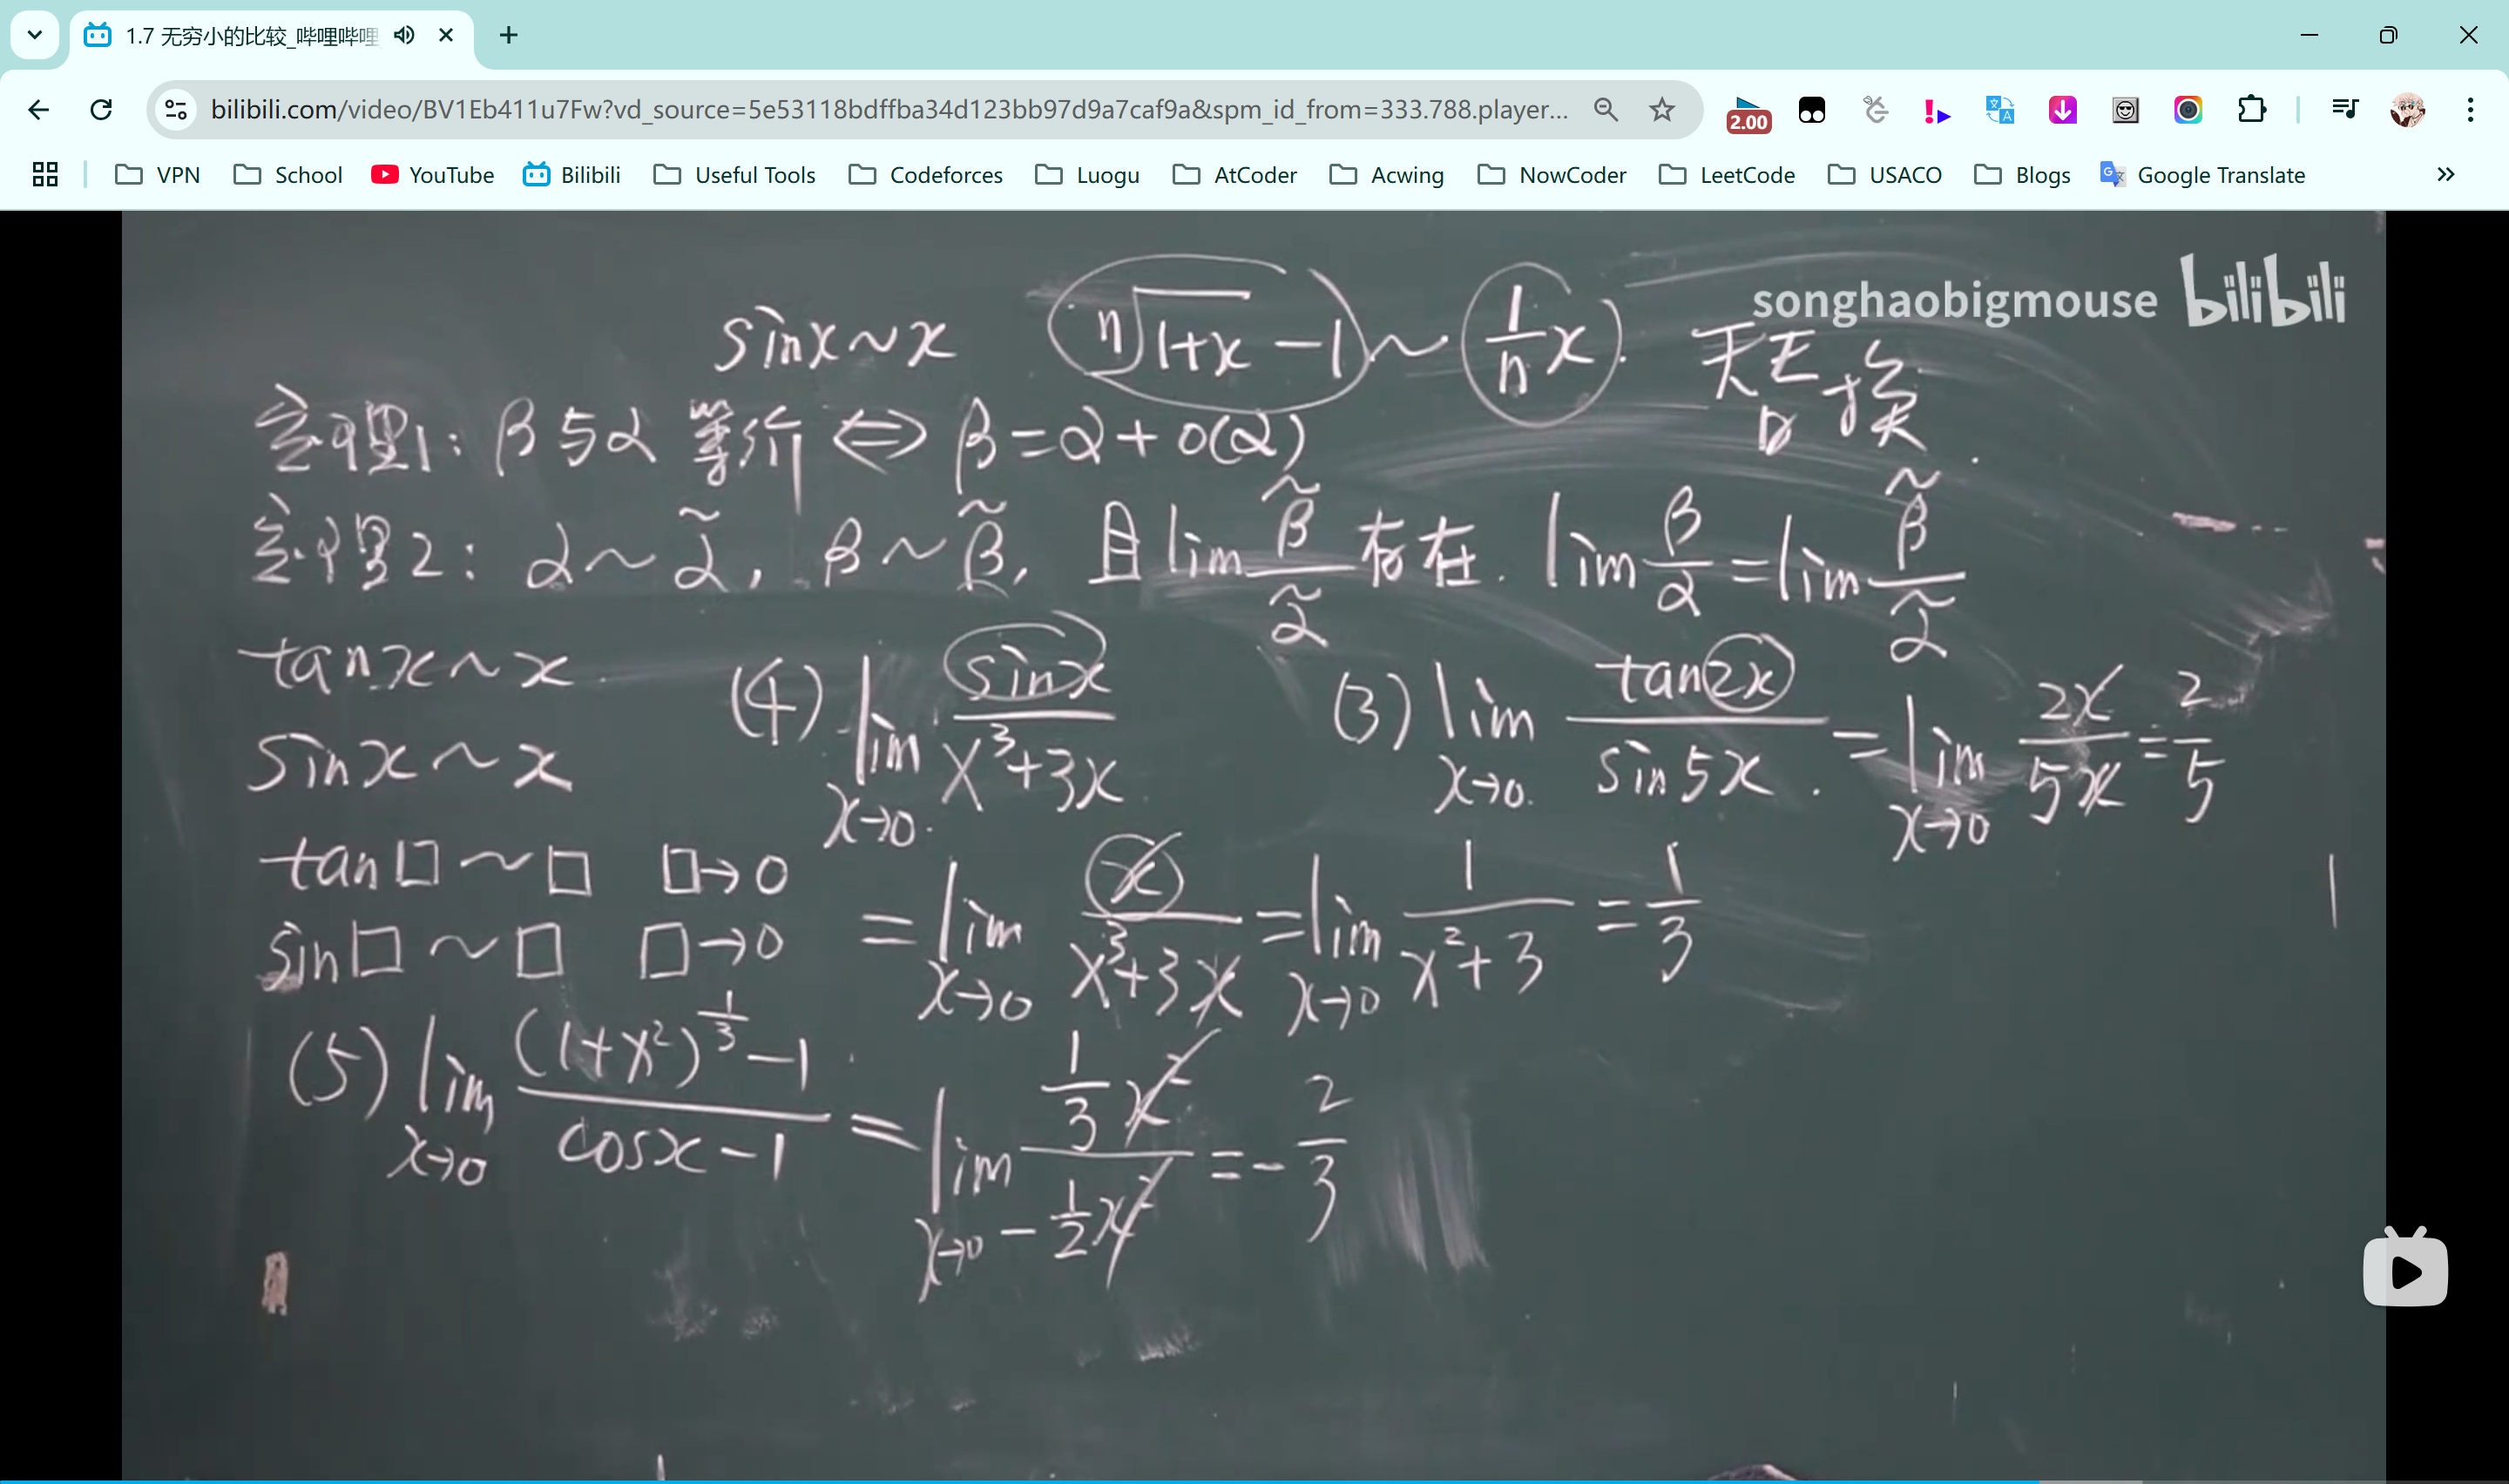 1.7 无穷小的比较_哔哩哔哩
bilibili.com/video/BV1Eb411u7Fw?vd_source=5e53118bdffba34d123bb97d9a7caf9a&spm_id_from=333.788.player...
2.00
VPN School YouTube Bilibili Useful Tools Codeforces Luogu AtCoder Acwing NowCoder LeetCode USACO Blogs Google Translate
songhaobigmouse bilibili
sinx~x ⁿ√(1+x) −1 ~ 1/n x.
定理1: β与α 等价 ⟺ β=α+o(α)
定理2: α~α̃, β~β̃, 且 lim β̃/α̃ 存在. lim β/α = lim β̃/α̃
tanx~x. (4) lim x→0. sinx/(x³+3x) (3) lim x→0. tan2x/sin5x. = lim x→0 2x/5x = 2/5
sinx~x
tan□~□ □→0 = lim x→0 x/(x³+3x) = lim x→0 1/(x²+3) = 1/3
sin□~□ □→0
(5) lim x→0 ((1+x²)^(1/3) −1)/(cosx−1) = lim x→0 (1/3 x²)/(−1/2 x²) = −2/3